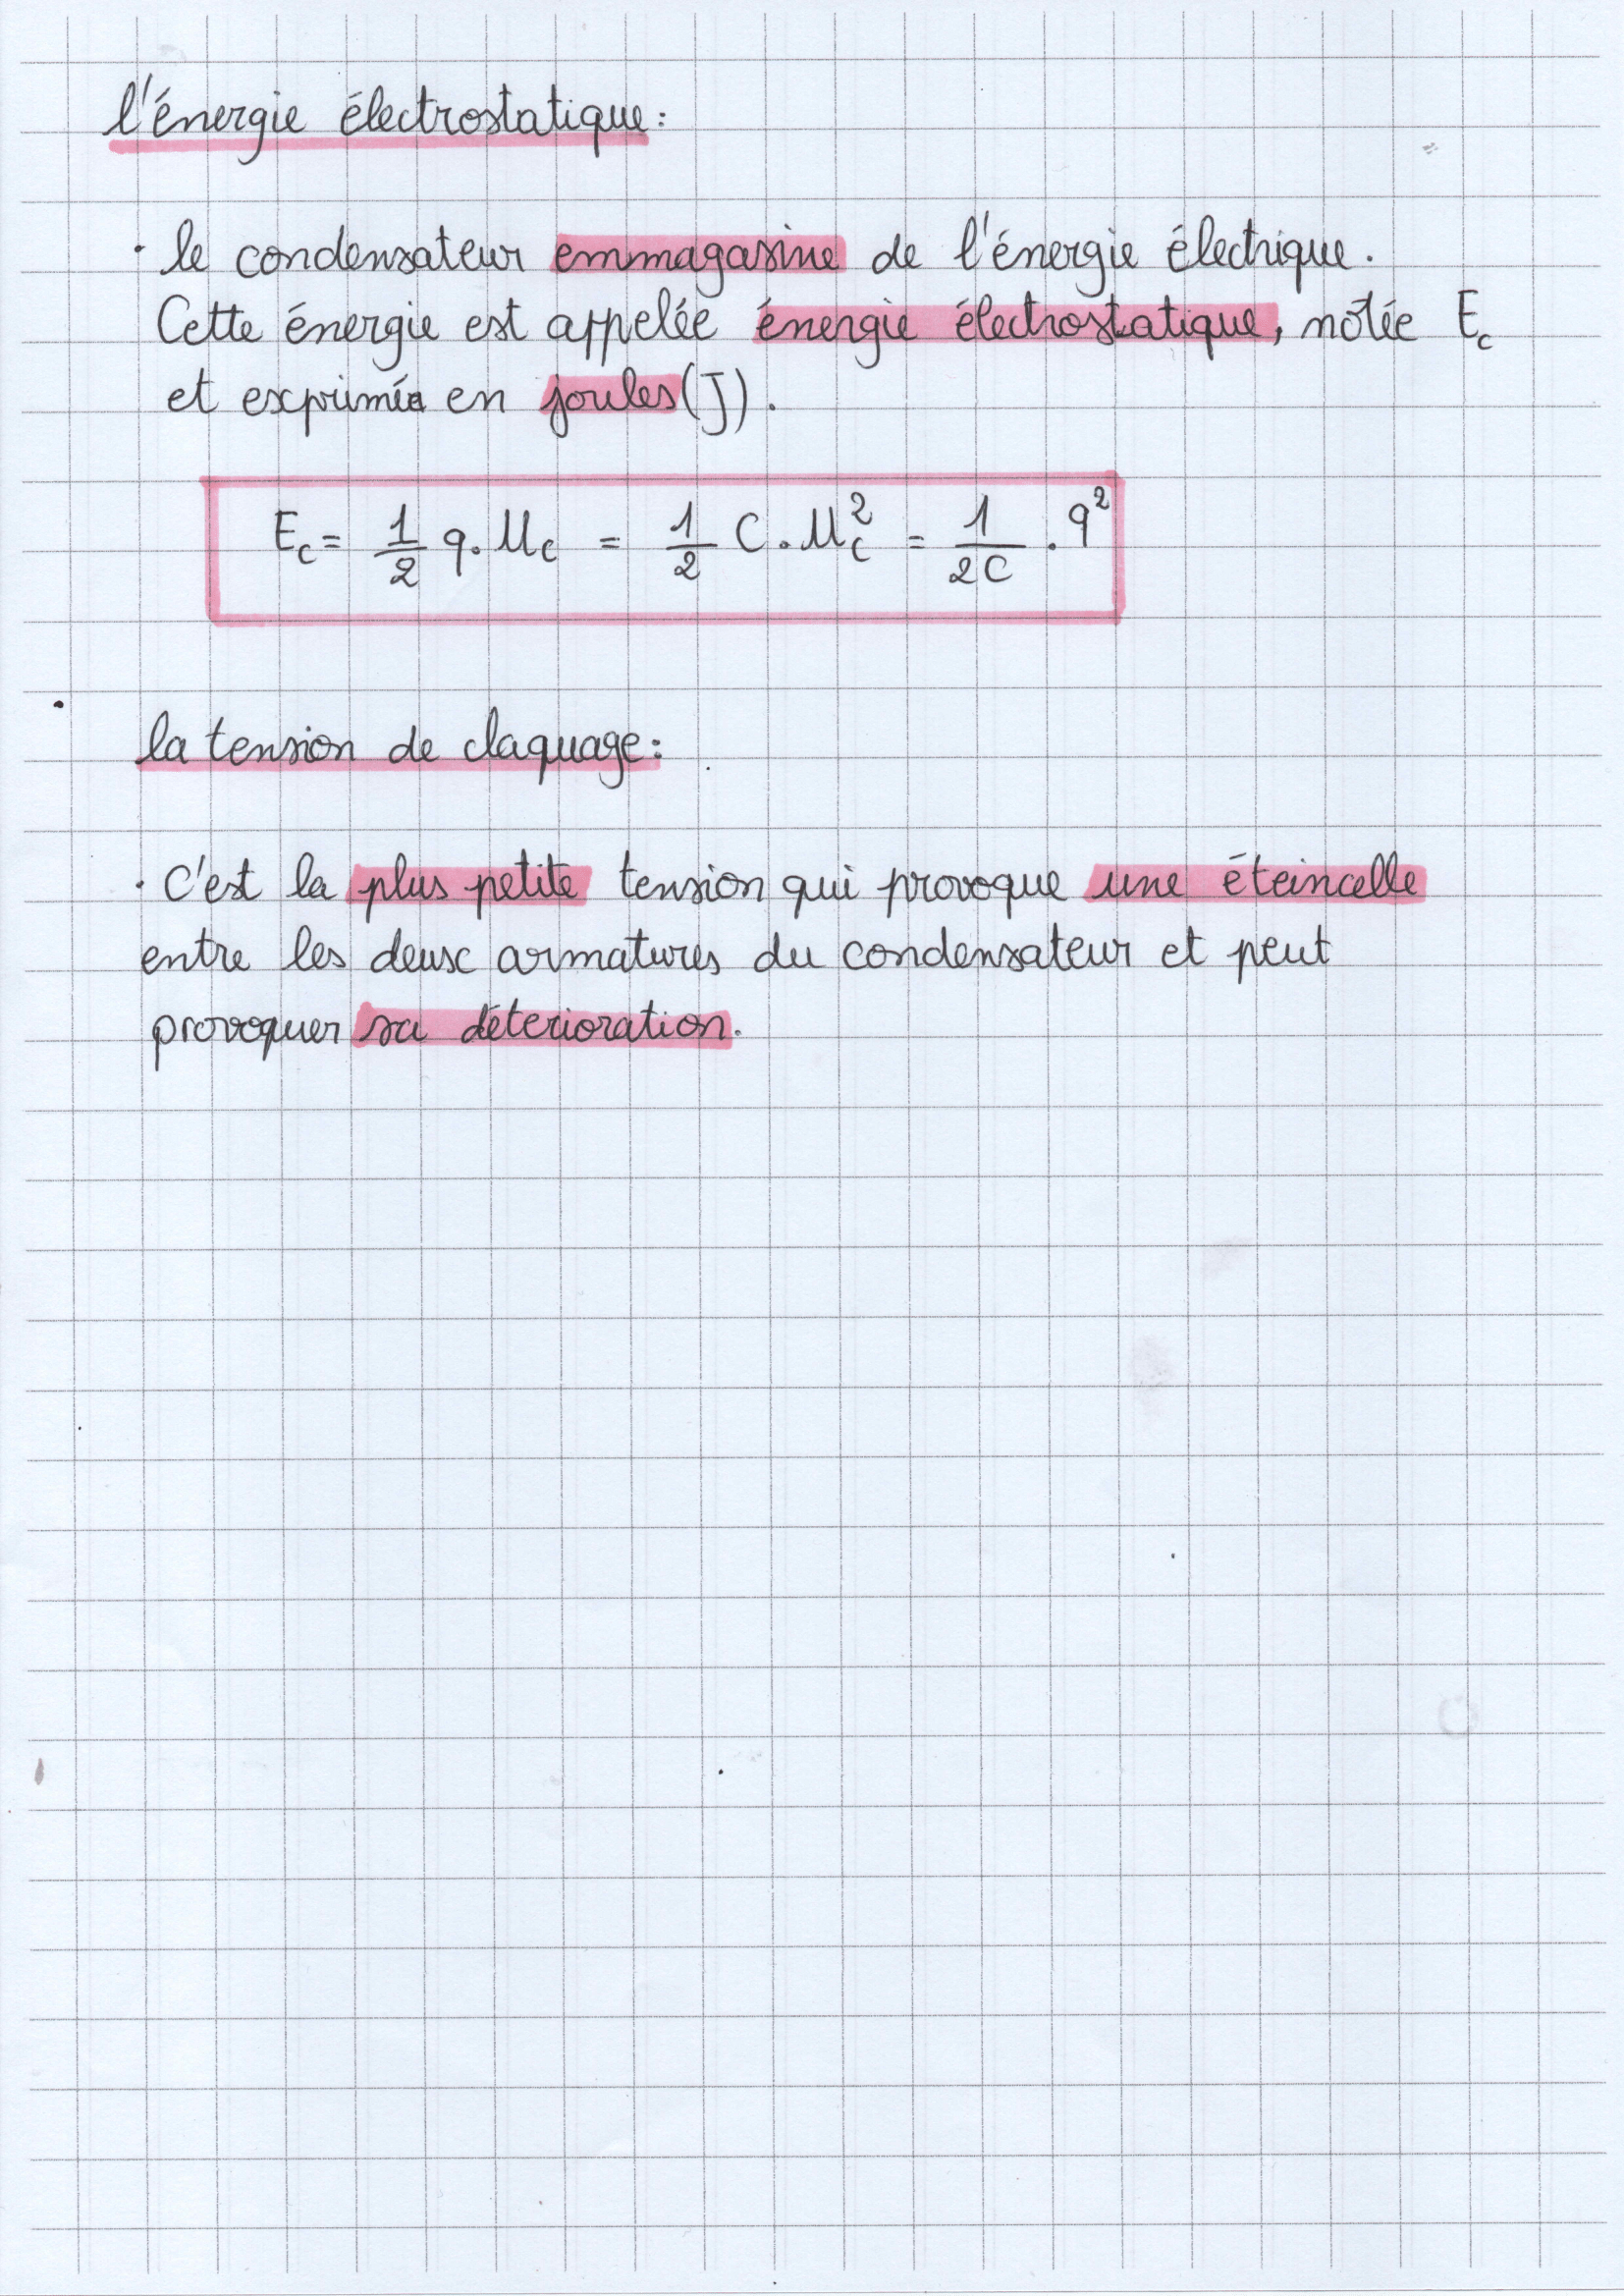 l'énergie électrostatique:
· le condensateur emmagasine de l'énergie électrique.
Cette énergie est appelée énergie électrostatique, nôtée E_c
et exprimée en joules (J).
E_c = 1/2 q. U_c = 1/2 C. U_c² = 1/2C . q²
la tension de claquage:
· C'est la plus petite tension qui provoque une éteincelle
entre les deux armatures du condensateur et peut
provoquer sa déterioration.